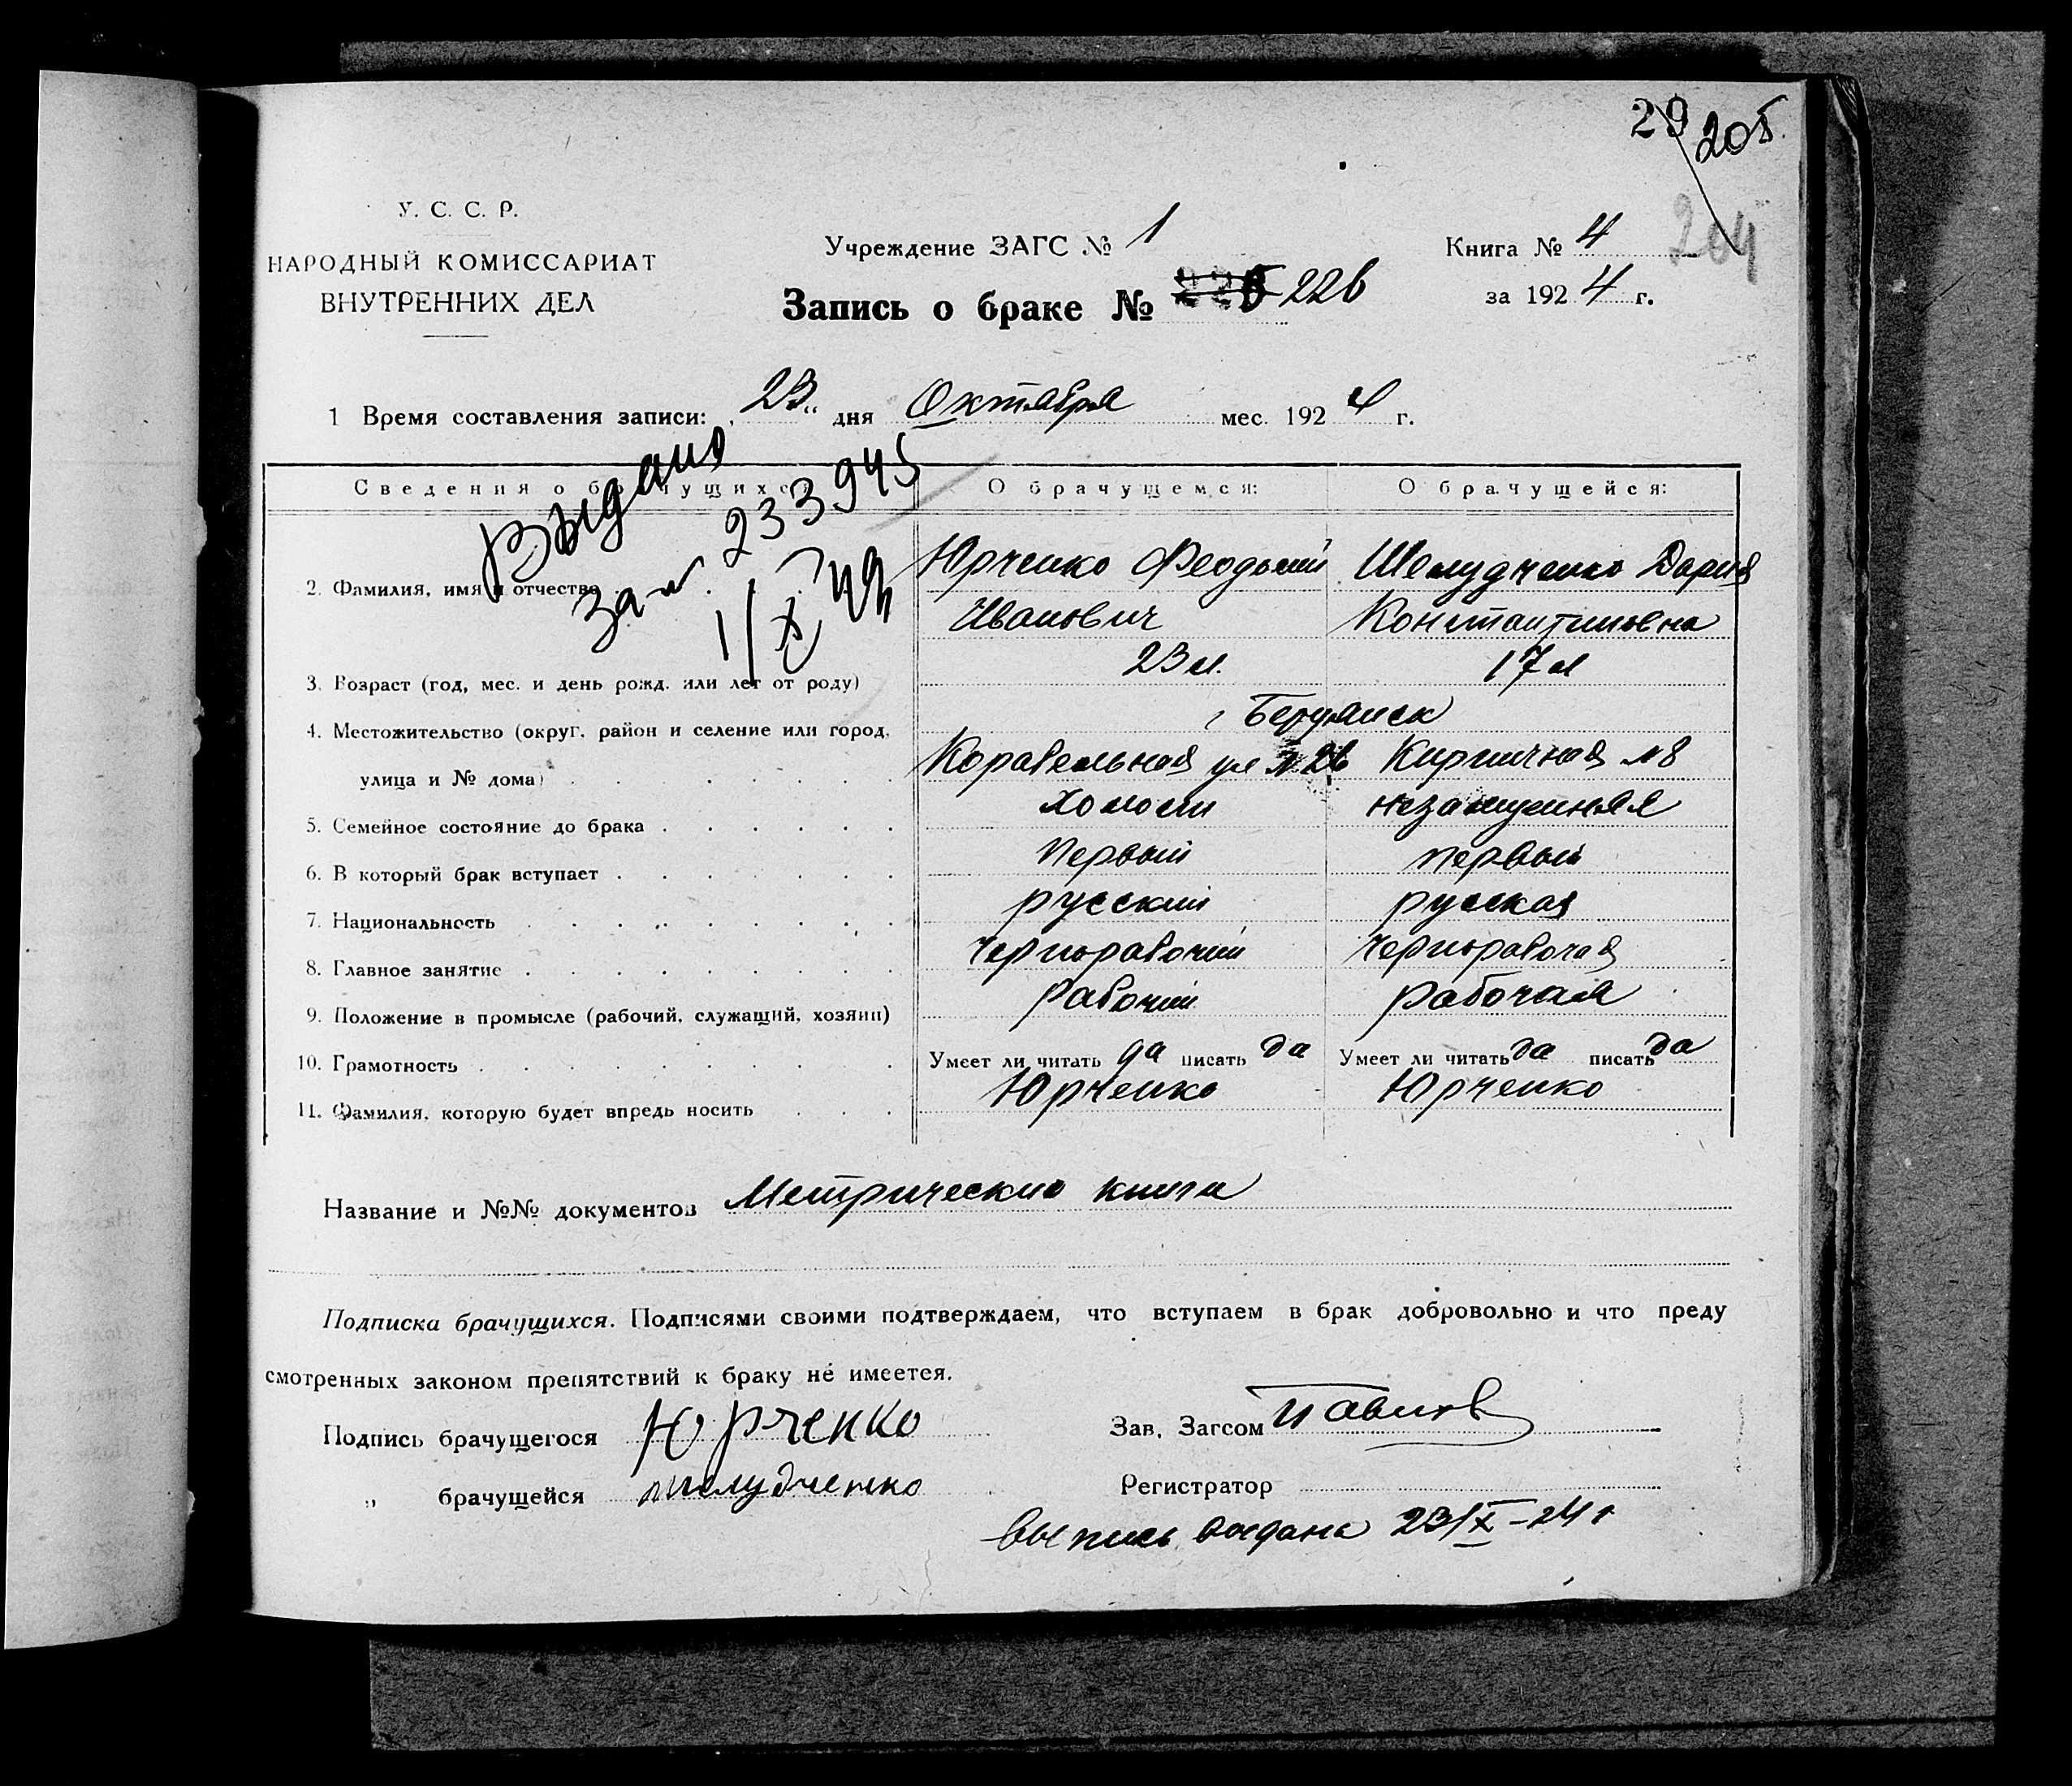 29 205
204
У. С. С. Р.
НАРОДНЫЙ КОМИССАРИАТ
ВНУТРЕННИХ ДЕЛ
Учреждение ЗАГС № 1
Книга № 4
Запись о браке № 226
за 1924 г.
1 Время составления записи: 23 дня Октября мес. 1924 г.
Выдано
за № 233945
1/X 49
Сведения о брачущихся
О брачущемся:
О брачущейся:
2. Фамилия, имя и отчество
Юрченко Феодосий
Шелудченко Дария
Иванович
Константиновна
3. Возраст (год, мес. и день рожд. или лет от роду)
23 л.
17 л
4. Местожительство (округ, район и селение или город,
Бердянск
улица и № дома)
Корабельная ул № 26
Кирпичная № 8
5. Семейное состояние до брака
холост
незамужняя
6. В который брак вступает
первый
первый
7. Национальность
русский
русская
8. Главное занятие
Чернорабочий
Чернорабочая
9. Положение в промысле (рабочий, служащий, хозяин)
рабочий
рабочая
10. Грамотность
Умеет ли читать да писать да
Умеет ли читать да писать да
11. Фамилия, которую будет впредь носить
Юрченко
Юрченко
Название и №№ документов Метрически книги
Подписка брачущихся. Подписями своими подтверждаем, что вступаем в брак добровольно и что преду
смотренных законом препятствий к браку не имеется.
Подпись брачущегося Юрченко
Зав. Загсом
„ брачущейся шелудченко
Регистратор
Выпись выдана 23/X-24 г